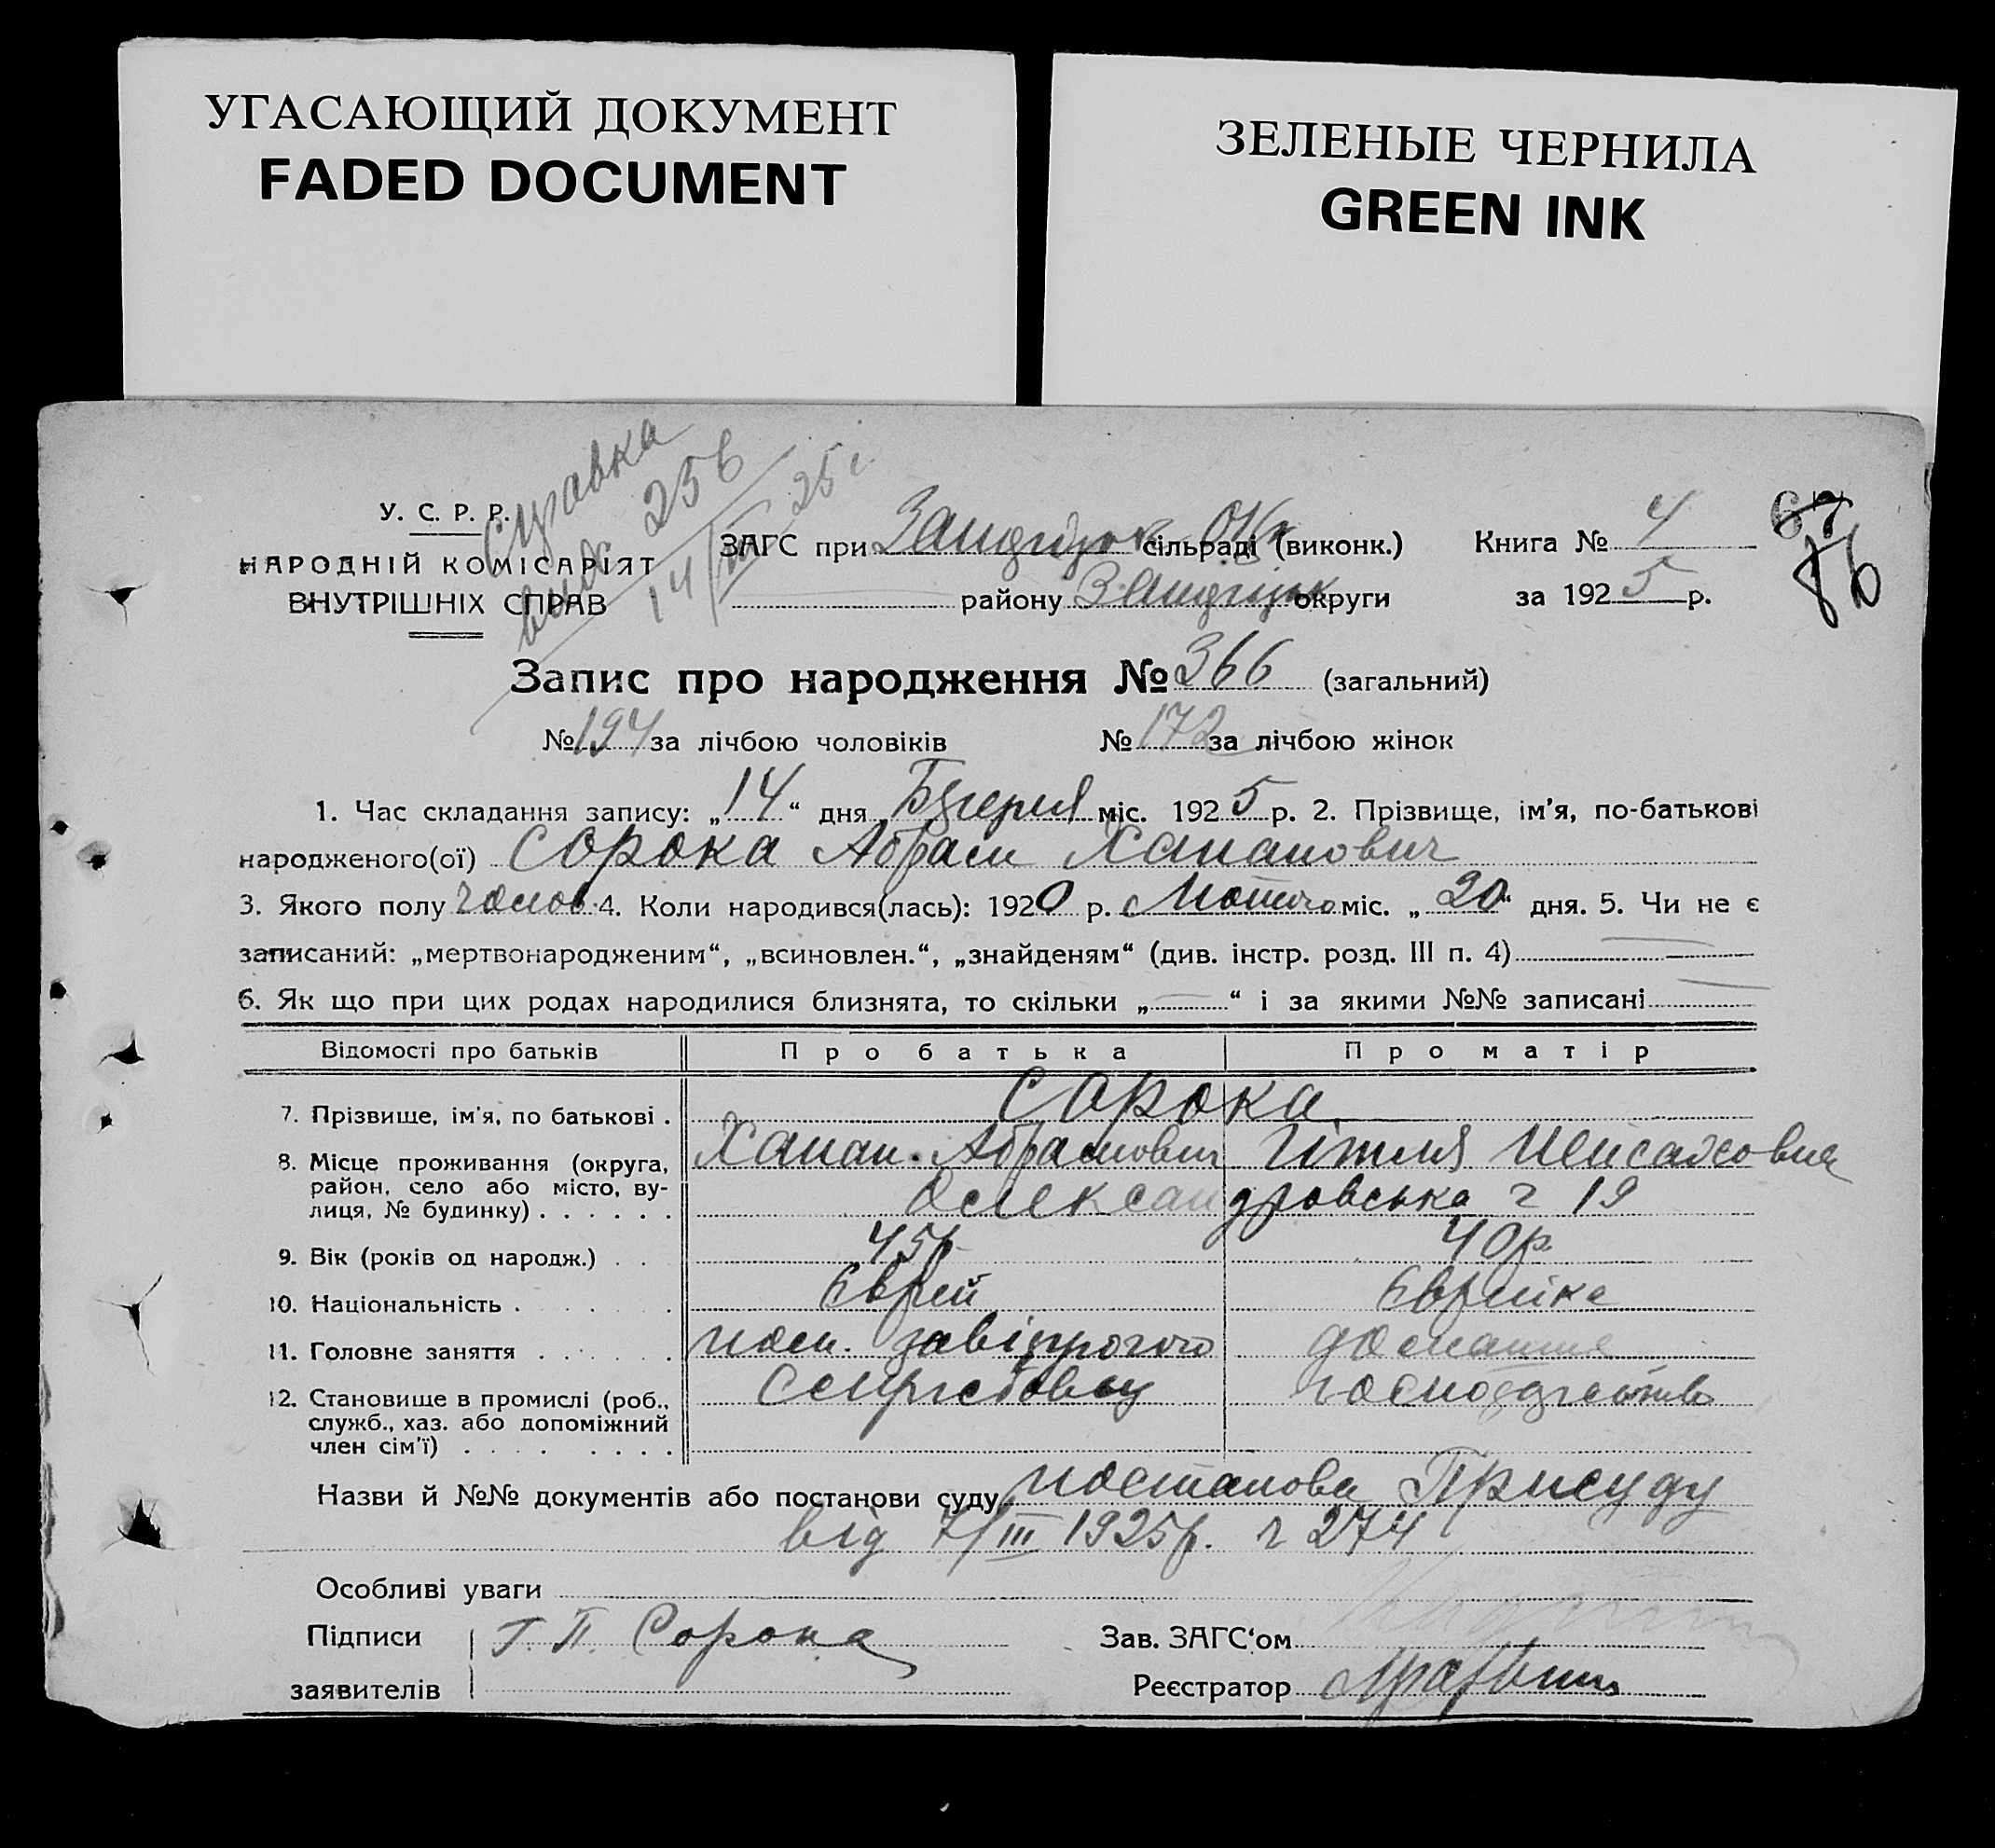 УГАСАЮЩИЙ ДОКУМЕНТ
FADED DOCUMENT
ЗЕЛЕНЫЕ ЧЕРНИЛА
GREEN INK
Справка
256
14/III 25 г.
У. С. Р. Р.
НАРОДНІЙ КОМІСАРІЯТ
ВНУТРІШНІХ СПРАВ
ЗАГС при сільраді (виконк.)
району округи
Книга № 4
за 1925 р.
67
86
Запис про народження № 366 (загальний)
№ 194 за лічбою чоловіків № 172 за лічбою жінок
1. Час складання запису: „14“ дня міс. 1925 р. 2. Прізвище, ім'я, по-батькові
народженого(ої) Сорока Абрам Хананович
3. Якого полу чолов. 4. Коли народився(лась): 1920 р. міс. „20“ дня. 5. Чи не є
записаний: „мертвонародженим“, „всиновлен.“, „знайденям“ (див. інстр. розд. III п. 4)
6. Як що при цих родах народилися близнята, то скільки „—“ і за якими №№ записані
Відомості про батьків Про батька Про матір
7. Прізвище, ім'я, по батькові . Сорока
Ханан Абрамович Гітля Пейсаховна
8. Місце проживання (округа,
район, село або місто, ву-
лиця, № будинку) . . . . . . Олександровська ч 19
9. Вік (років од народж.) . . 45р. 40р.
10. Національність . . . . . Єврей Єврейка
11. Головне заняття . . . . . пом. домашнє
12. Становище в промислі (роб.,
служб., хаз. або допоміжний
член сім'ї) . . . . . . . .
Назви й №№ документів або постанови суду постанова Присуду
від 7/III 1925р. ч 274
Особливі уваги
Підписи Г. П. Сорока Зав. ЗАГС‘ом
заявителів Реєстратор